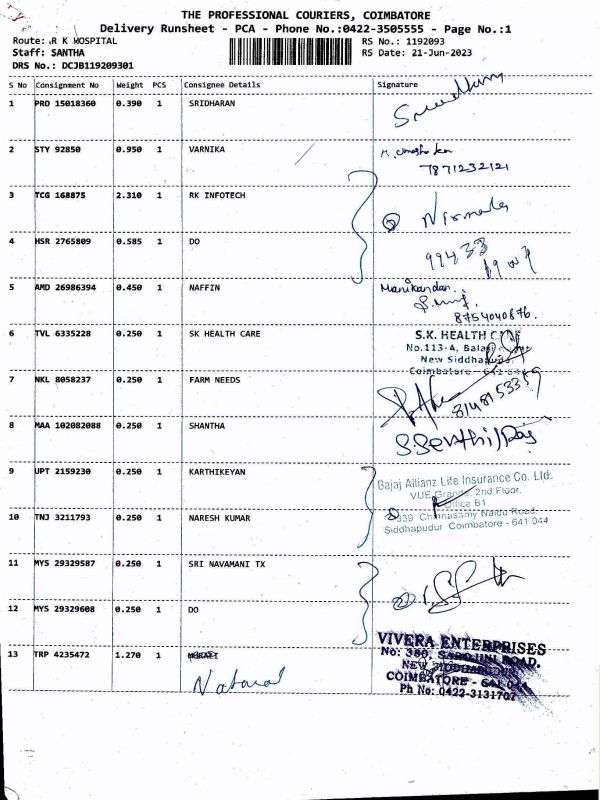 THE PROFESSIONAL COURIERS, COIMBATORE
Delivery Runsheet - PCA - Phone No.:0422-3505555 - Page No.:1
Route: R K HOSPITAL RS No.: 1192093
Staff: SANTHA RS Date: 21-Jun-2023
DRS No.: DCJB119209301
S No Consignment No Weight PCS Consignee Details Signature
1 PRO 15018360 0.390 1 SRIDHARAN
2 STY 92850 0.950 1 VARNIKA
7871232121
3 TCG 168875 2.310 1 RK INFOTECH
Nirmala
4 HSR 2765809 0.585 1 DO
99433
5 AMD 26986394 0.450 1 NAFFIN Manikandan
8754040876.
6 TVL 6335228 0.250 1 SK HEALTH CARE S.K. HEALTH
No.113-A,
New Siddhapudur
Coimbatore
7 NKL 8058237 0.250 1 FARM NEEDS
8148153359
8 MAA 102082088 0.250 1 SHANTHA
9 UPT 2159230 0.250 1 KARTHIKEYAN Bajaj Allianz Life Insurance Co. Ltd.
VUE Grande, 2nd Floor,
Office B1
339 Chinnasamy Naidu Road
10 TNJ 3211793 0.250 1 NARESH KUMAR Siddhapudur Coimbatore - 641 044
11 MYS 29329587 0.250 1 SRI NAVAMANI TX
12 MYS 29329608 0.250 1 DO
13 TRP 4235472 1.270 1 VIVERA ENTERPRISES
No: 380, SAROJINI ROAD.
NEW SIDDHAPUDUR
COIMBATORE -
Ph No: 0422-3131707